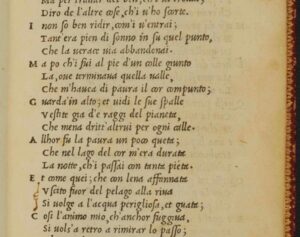 Ma per trattar del ben, ch'i ui trouai;
Diro de l'altre cose, ch'i u'ho scorte.
I non so ben ridir, com'i u'entrai;
Tant'era pien di sonno in su quel punto,
Che la uerace uia abbandonai.
Ma po ch'i fui al pie d'un colle giunto
La, oue terminaua quella ualle,
Che m'hauea di paura il cor compunto;
Guarda'in alto; et uidi le sue spalle
Vestite gia d'e raggi del pianeta,
Che mena dritt'altrui per ogni calle.
Allhor fu la paura un poco queta;
Che nel lago del cor m'era durata
La notte, ch'i passai con tanta pieta.
Et come quei; che con lena affannata
Vscito fuor del pelago alla riua
Si uolge a l'acqua perigliosa, et guata;
Cosi l'animo mio, ch'anchor fuggiua,
Si uols'a retro a rimirar lo passo;